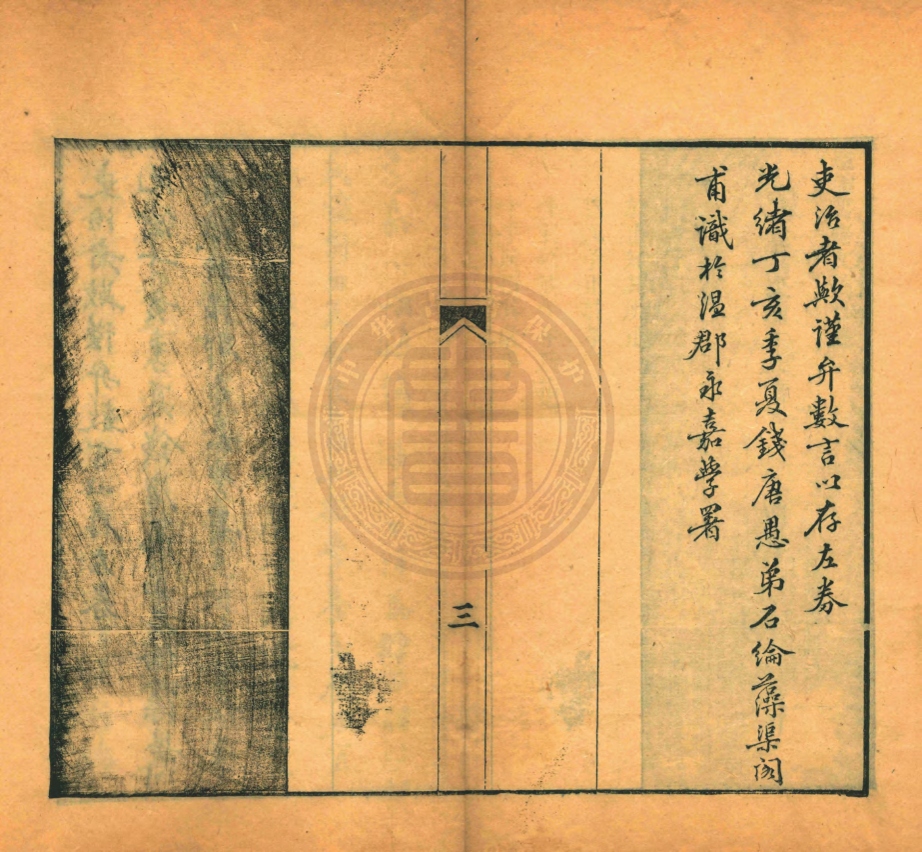 吏治者歟謹弁數言以存左券
光緒丁亥季夏錢唐愚弟石綸藻渠閣
甫識於温郡永嘉學署
三